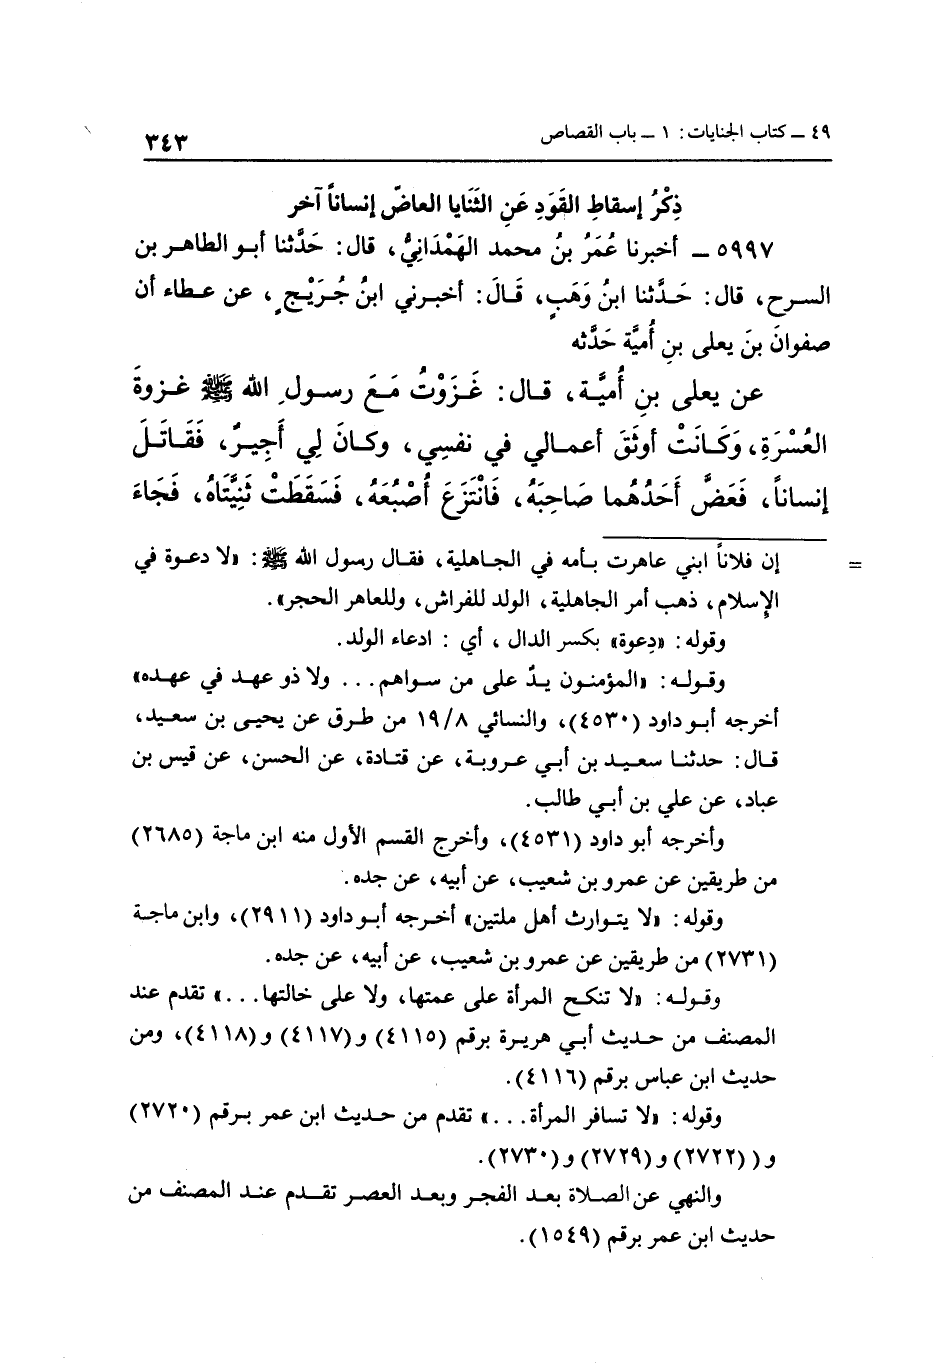 ٤٩ ـ كتاب الجنايات: ١ ـ باب القصاص ٣٤٣
ذِكْرُ إسقاطِ القَوَدِ عَنِ الثَنَايا العاضّ إنساناً آخر
٥٩٩٧ ـ أخبرنا عُمَرُ بنُ محمد الهَمْدَانِيُّ، قال: حَدَّثنا أبو الطاهر بن
السرح، قال: حَدَّثنا ابنُ وَهَبٍ، قَالَ: أخبرني ابنُ جُرَيْجٍ، عن عطاء أن
صفوانَ بنَ يعلى بنِ أُميَّة حَدَّثه
عن يعلى بنِ أُميَّة، قال: غَزَوْتُ مَعَ رسولِ الله ﷺ غزوةَ
العُسْرَةِ، وَكَانَتْ أوثَقَ أعمالي في نفسِي، وكانَ لِي أَجِيرٌ، فَقَاتَلَ
إنساناً، فَعَضَّ أَحَدُهُما صَاحِبَهُ، فَانْتَزَعَ أُصْبُعَهُ، فَسَقَطَتْ ثَنِيَّتَاهُ، فَجَاءَ
= إن فلاناً ابني عاهرت بأمه في الجاهلية، فقال رسول الله ﷺ: «لا دعوة في
الإسلام، ذهب أمر الجاهلية، الولد للفراش، وللعاهر الحجر».
وقوله: «دِعوة» بكسر الدال، أي: ادعاء الولد.
وقوله: «المؤمنون يدٌ على من سواهم... ولا ذو عهد في عهده»
أخرجه أبو داود (٤٥٣٠)، والنسائي ١٩/٨ من طرق عن يحيى بن سعيد،
قال: حدثنا سعيد بن أبي عروبة، عن قتادة، عن الحسن، عن قيس بن
عباد، عن علي بن أبي طالب.
وأخرجه أبو داود (٤٥٣١)، وأخرج القسم الأول منه ابن ماجة (٢٦٨٥)
من طريقين عن عمرو بن شعيب، عن أبيه، عن جده.
وقوله: «لا يتوارث أهل ملتين» أخرجه أبو داود (٢٩١١)، وابن ماجة
(٢٧٣١) من طريقين عن عمرو بن شعيب، عن أبيه، عن جده.
وقوله: «لا تنكح المرأة على عمتها، ولا على خالتها...» تقدم عند
المصنف من حديث أبي هريرة برقم (٤١١٥) و(٤١١٧) و(٤١١٨)، ومن
حديث ابن عباس برقم (٤١١٦).
وقوله: «لا تسافر المرأة...» تقدم من حديث ابن عمر برقم (٢٧٢٠)
و((٢٧٢٢) و(٢٧٢٩) و(٢٧٣٠).
والنهي عن الصلاة بعد الفجر وبعد العصر تقدم عند المصنف من
حديث ابن عمر برقم (١٥٤٩).